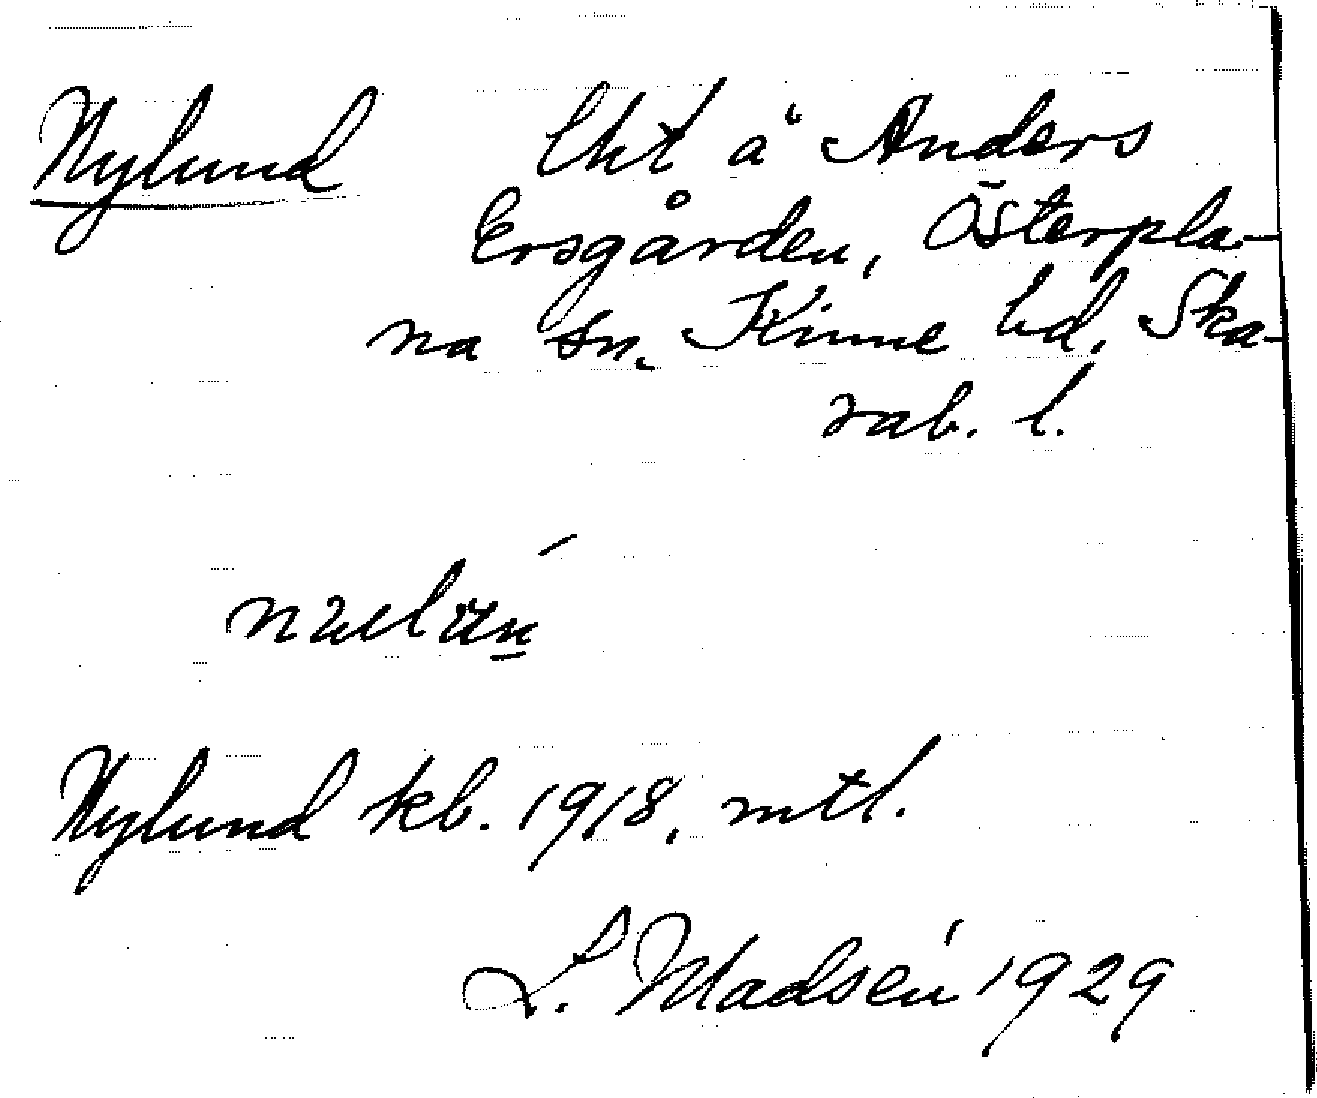 Nylund lht å Anders
Ersgården, Österpla-
na sn, Kinne hd, Ska-
rab. l.
Nylund kb. 1918, mtl.
L. Madsén 1929